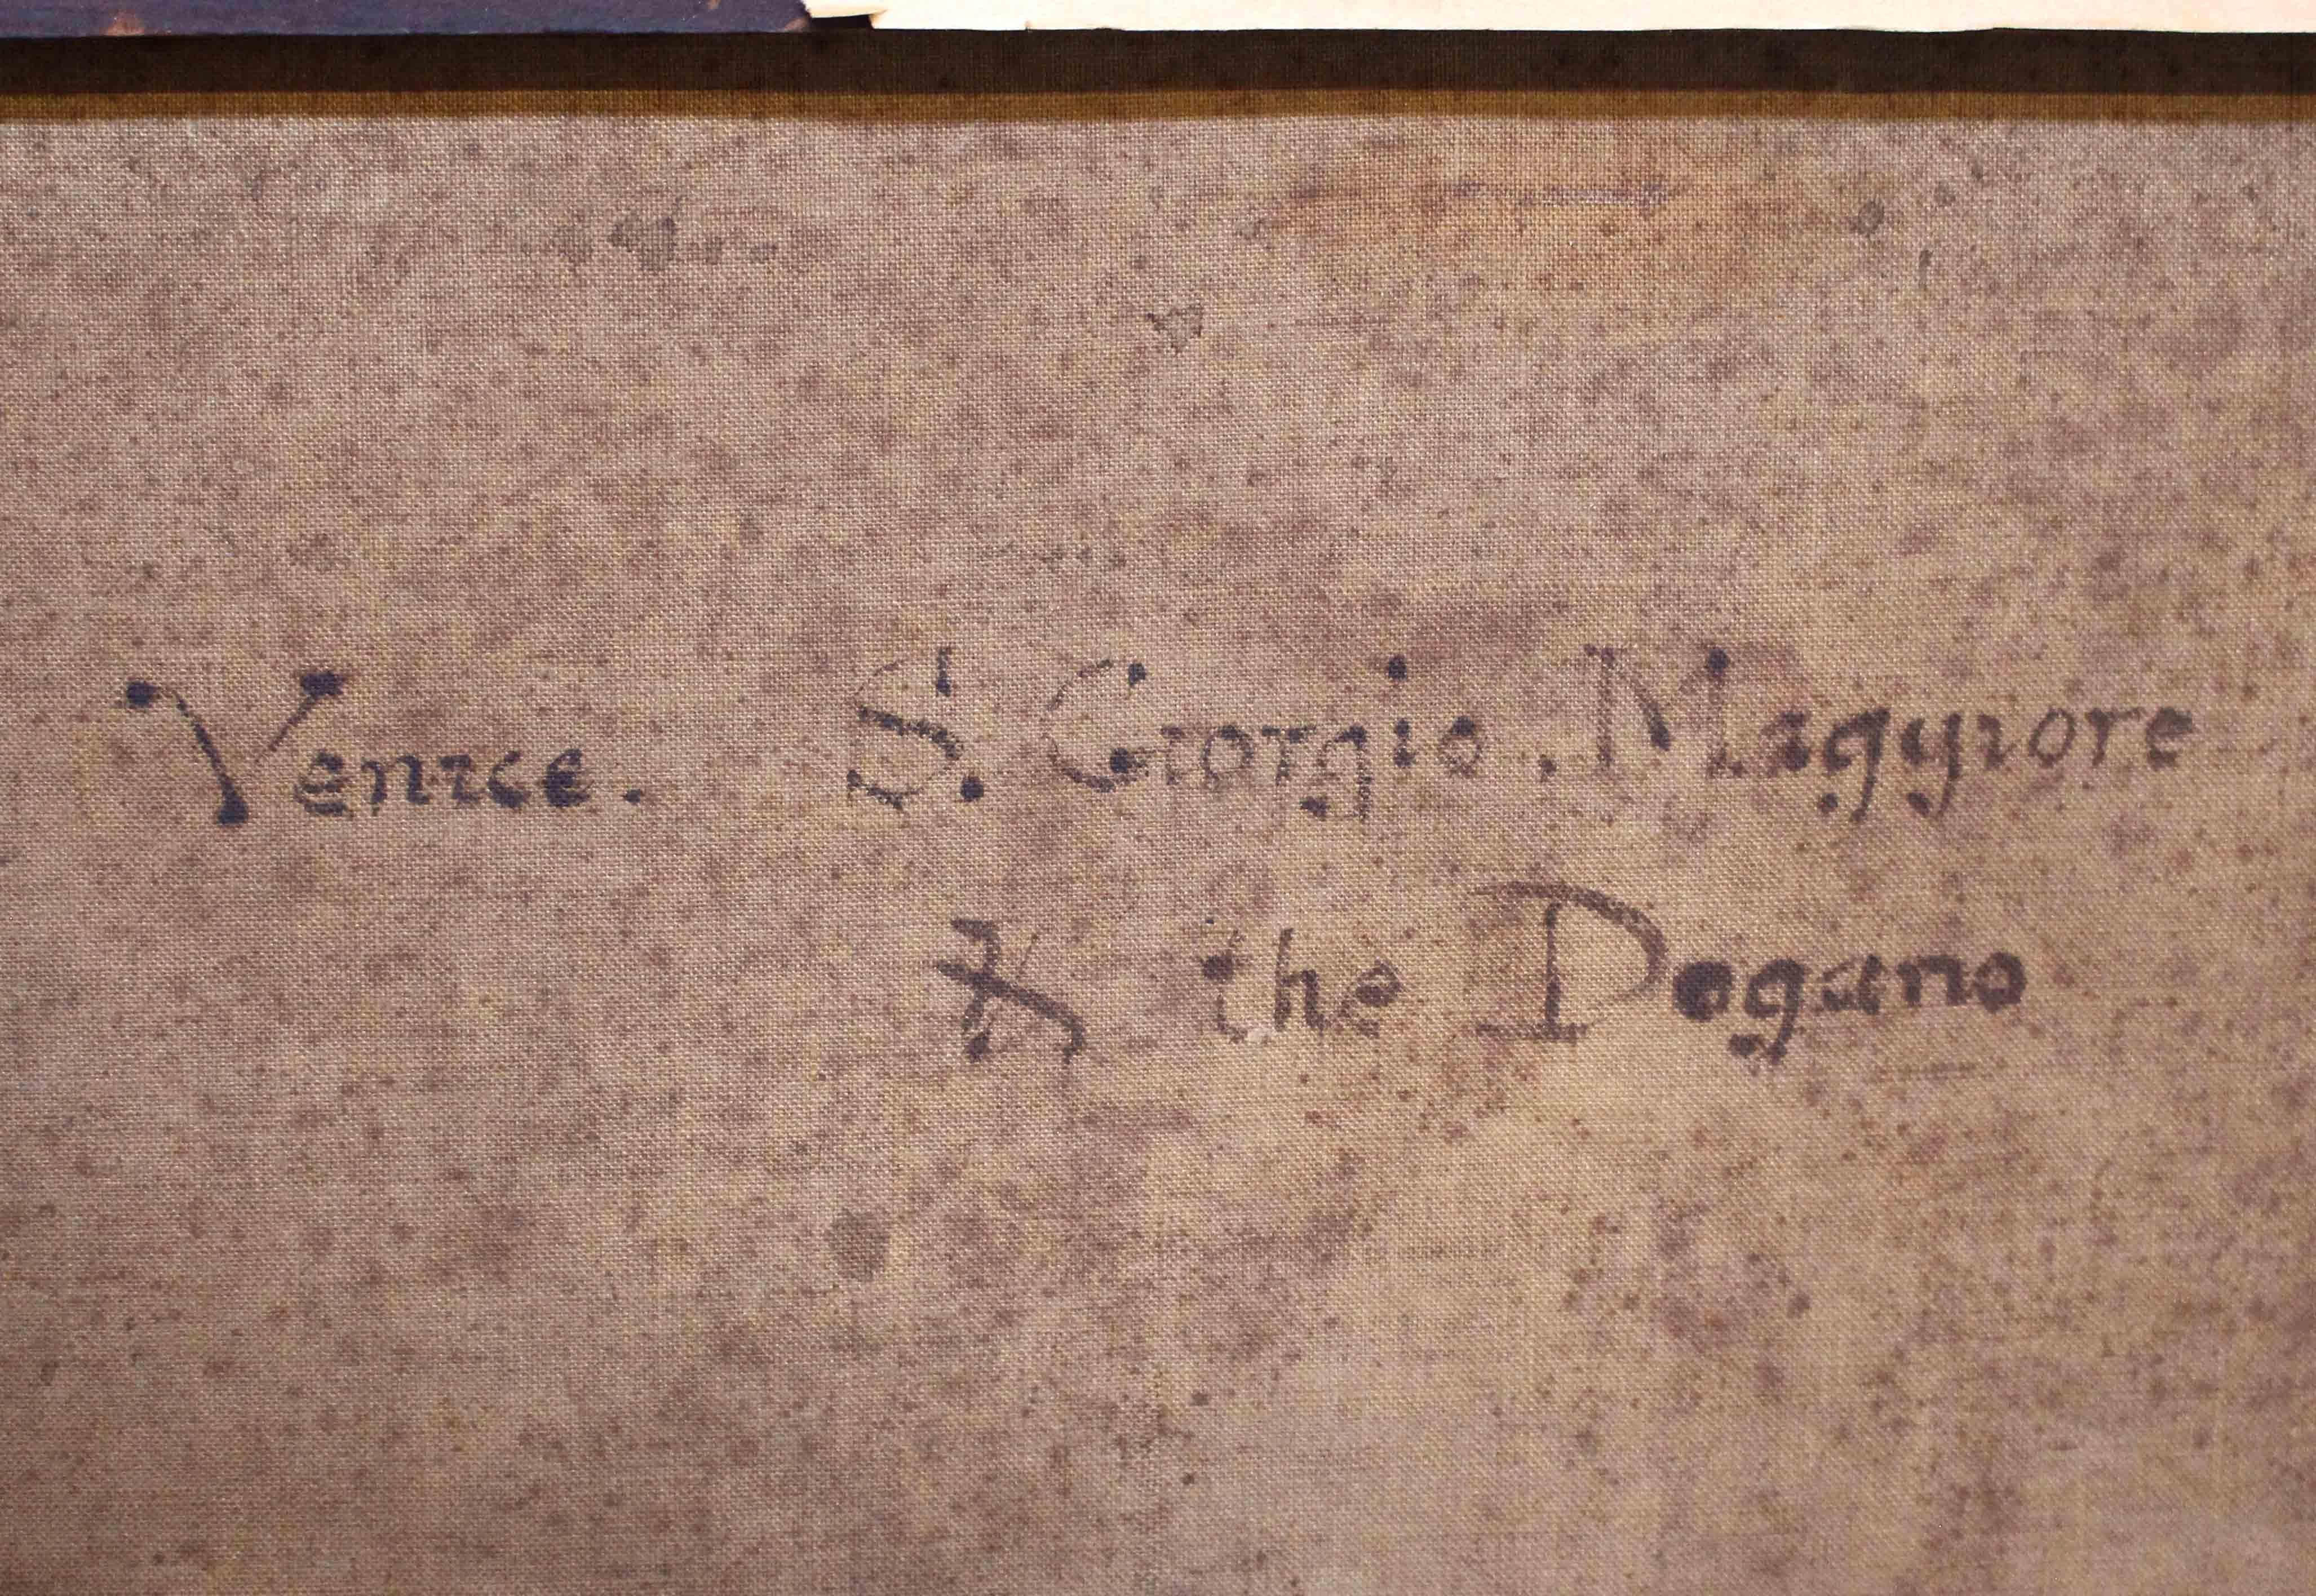 Venice. S. Giorgio Maggiore
& the Dogano